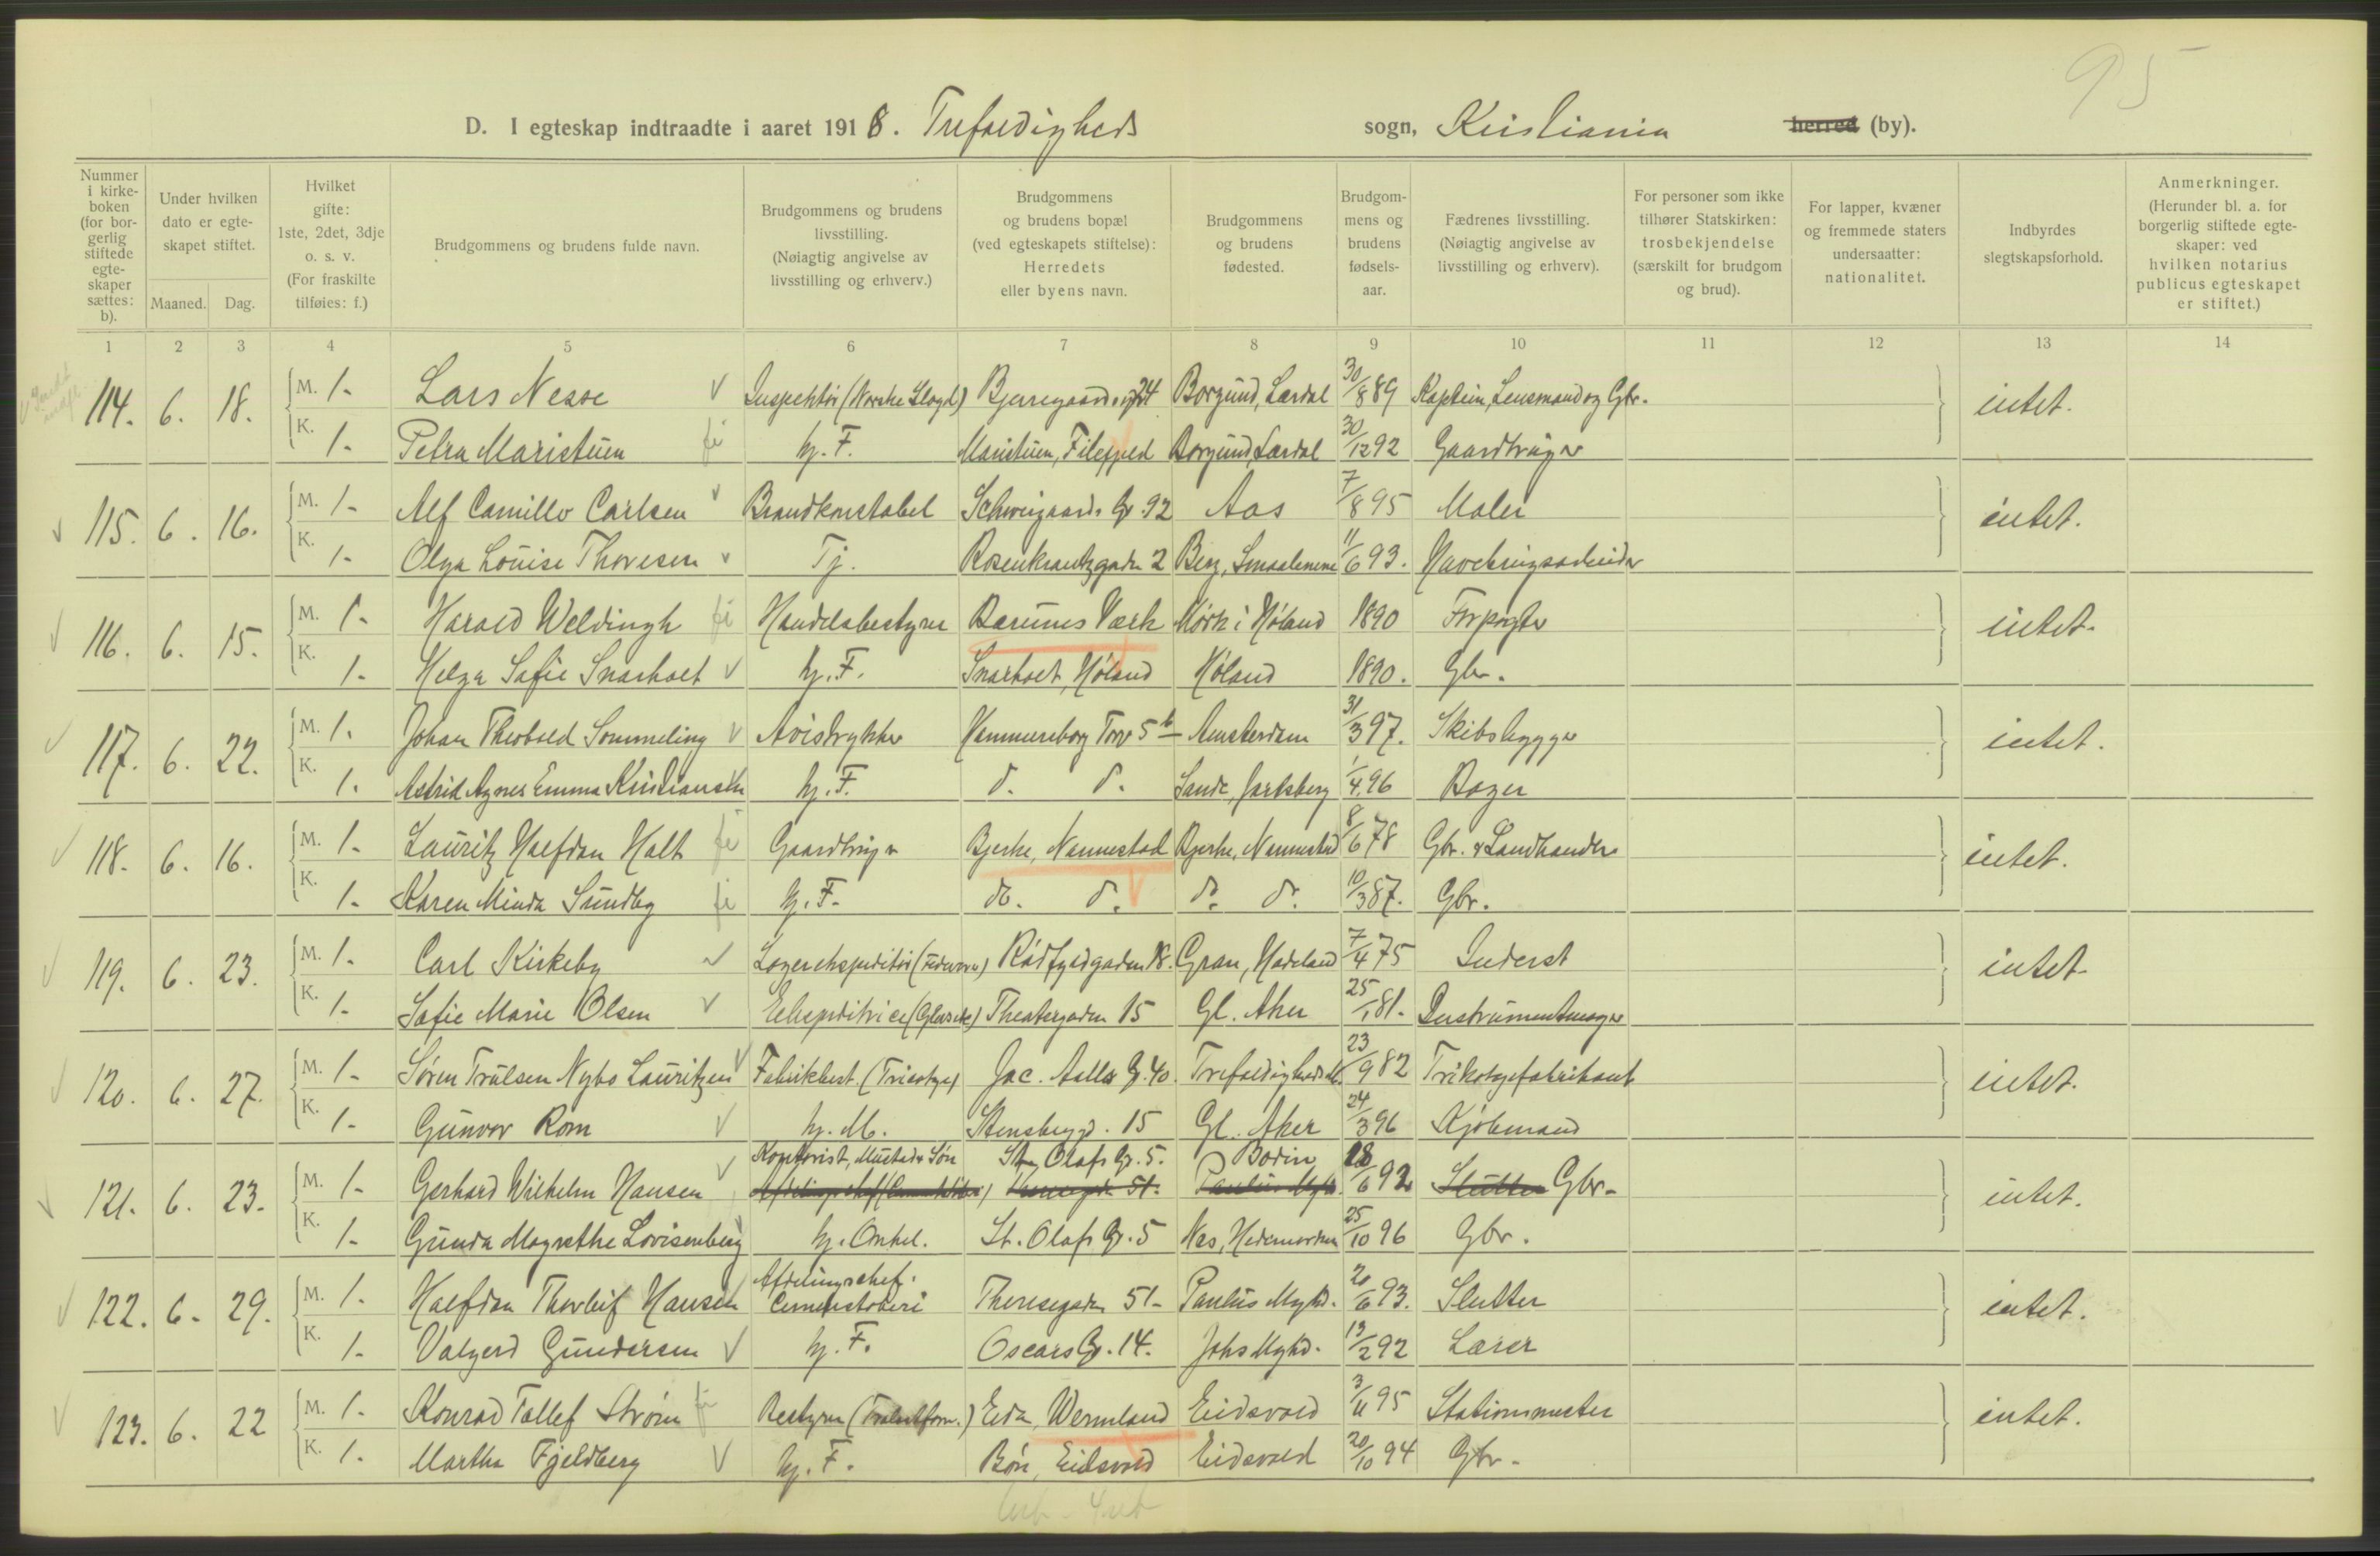 95
D. I egteskap indtraadte i aaret 1918. Trefoldigheds sogn, Kristiania herred (by).
Nummer i kirkeboken (for borgerlig stiftede egteskaper sættes: b).
Under hvilken dato er egteskapet stiftet.
Maaned. Dag.
Hvilket gifte: 1ste, 2det, 3dje o. s. v. (For fraskilte tilføies: f.)
Brudgommens og brudens fulde navn.
Brudgommens og brudens livsstilling. (Nøiagtig angivelse av livsstilling og erhverv.)
Brudgommens og brudens bopæl (ved egteskapets stiftelse): Herredets eller byens navn.
Brudgommens og brudens fødested.
Brudgommens og brudens fødselsaar.
Fædrenes livsstilling. (Nøiagtig angivelse av livsstilling og erhverv).
For personer som ikke tilhører Statskirken: trosbekjendelse (særskilt for brudgom og brud).
For lapper, kvæner og fremmede staters undersaatter: nationalitet.
Indbyrdes slegtskapsforhold.
Anmerkninger. (Herunder bl. a. for borgerlig stiftede egteskaper: ved hvilken notarius publicus egteskapet er stiftet.)
1 2 3 4 5 6 7 8 9 10 11 12 13 14
114. 6. 18. M. 1. Lars Nesse Inspektør (Norske Lloyd) Bjerregaards gt 24 Borgund, Lærdal 30/8 89 Kaptein, Lensmand og Gbr. intet.
K. 1. Petra Maristuen hj. F. Maristuen, Filefjeld Borgund, Lærdal 30/12 92 Gaardbruger
115. 6. 16. M. 1. Alf Camillo Carlsen Brandkonstabel Schweigaards G. 92 Aas 7/8 95 Maler intet.
K. 1. Olga Louise Thoresen Tj. Rosenkrantzgaden 2 Berg, Smaalenene 11/6 93. Høvelringsarbeider
116. 6. 15. M. 1. Harald Weldingh Handelsbestyrer Bærums Værk Mørk i Høland 1890 Forpagter intet.
K. 1. Helga Sofie Snarholt hj. F. Snarholt, Høland Høland 1890. Gbr.
117. 6. 22. M. 1. Johan Theobald Sommeling Avistrykker Hammersborg Torv 5 b Amsterdam 31/3 97. Skibsbygger intet.
K. 1. Astrid Agnes Emma Kristiansen hj. F. d. d. Sande, Jarlsberg 1/4 96 Bager
118. 6. 16. M. 1. Lauritz Halfdan Holt Gaardbruger Bjerke, Nannestad Bjerke, Nannestad 8/6 78 Gbr. & Landhandler intet.
K. 1. Karen Minda Sundby hj. F. do. d. d. d. 10/3 87. Gbr.
119. 6. 23. M. 1. Carl Kirkeby Lagerekspeditør Rødfyldgaden 18. Gran, Hadeland 7/4 75 Inderst intet
K. 1. Sofie Marie Olsen Ekspeditrice Theatergaden 15 Gl. Aker 25/1 81. Instrumentmager
120. 6. 27. M. 1. Søren Trulsen Nybo Lauritzen Fabrikbest. (Tricotage) Jac. Aalls G. 40. Trefoldigheds 23/9 82 Trikotagefabrikant intet.
K. 1. Gunvor Rom hj. M. Stensberggd. 15 Gl. Aker 24/3 96 Kjøbmand
121. 6. 23. M. 1. Gerhard Wilhelm Hansen Kontorist, Mustad & Søn St. Olafs G. 5. Bodin 18/6 92 Slutter Gbr. intet.
K. 1. Gunda Magrethe Lovisenberg hj. Onkel. St. Olafs G. 5 Nes, Hedemarken 25/10 96 Gbr.
122. 6. 29. M. 1. Halfdan Thorleif Hansen Afdelingschef. Cementstøberi Theresegaden 51 Paulus Mghd. 20/6 93. Slutter intet.
K. 1. Valgerd Gundersen hj. F. Oscars G. 14. Johs Mghd. 13/2 92 Lærer
123. 6. 22 M. 1. Konrad Tallef Strøm Bestyrer Eda, Wermland Eidsvold 3/11 95 Stationsmester intet.
K. 1. Martha Fjeldberg hj. F. Bøn, Eidsvold Eidsvold 20/10 94 Gbr.